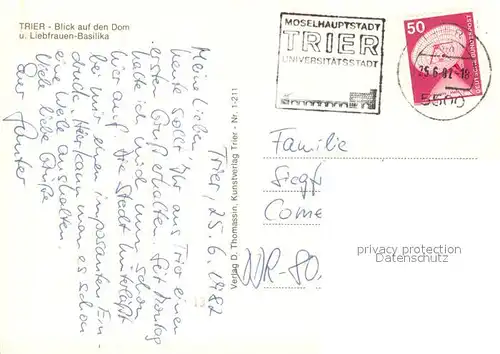 TRIER - Blick auf den Dom
u. Liebfrauen-Basilika
MOSELHAUPTSTADT
TRIER
UNIVERSITÄTSSTADT
50
DEUTSCHE BUNDESPOST
25.6.82-18
5500
Trier, 25.6.1982
Meine Lieben,
heute sollt Ihr aus Trier einen
ersten Gruß erhalten. Seit Montag
halte ich mich nun schon
hier auf. Die Stadt hinterläßt
bei mir einen imposanten Ein-
druck. Hier kann man es schon
eine Weile aushalten.
Viele liebe Grüße
Euer Günter
Verlag D. Thomassin, Kunstverlag Trier - Nr. 1-211
Familie
Siegf
Come
privacy protection
AnsichtskartenVersand.com